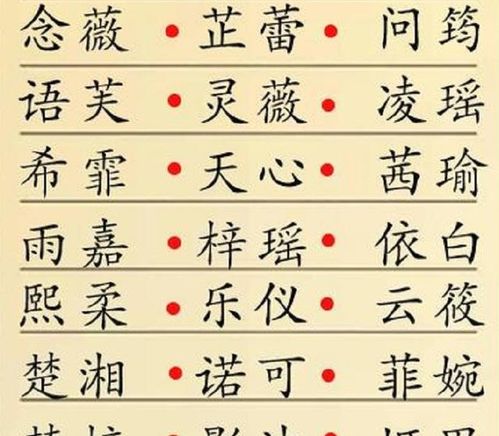 念薇 • 芷蕾 • 问筠
语芙 • 灵薇 • 凌瑶
希霏 • 天心 • 茜瑜
雨嘉 • 梓瑶 • 依白
熙柔 • 乐仪 • 云筱
楚湘 • 诺可 • 菲婉